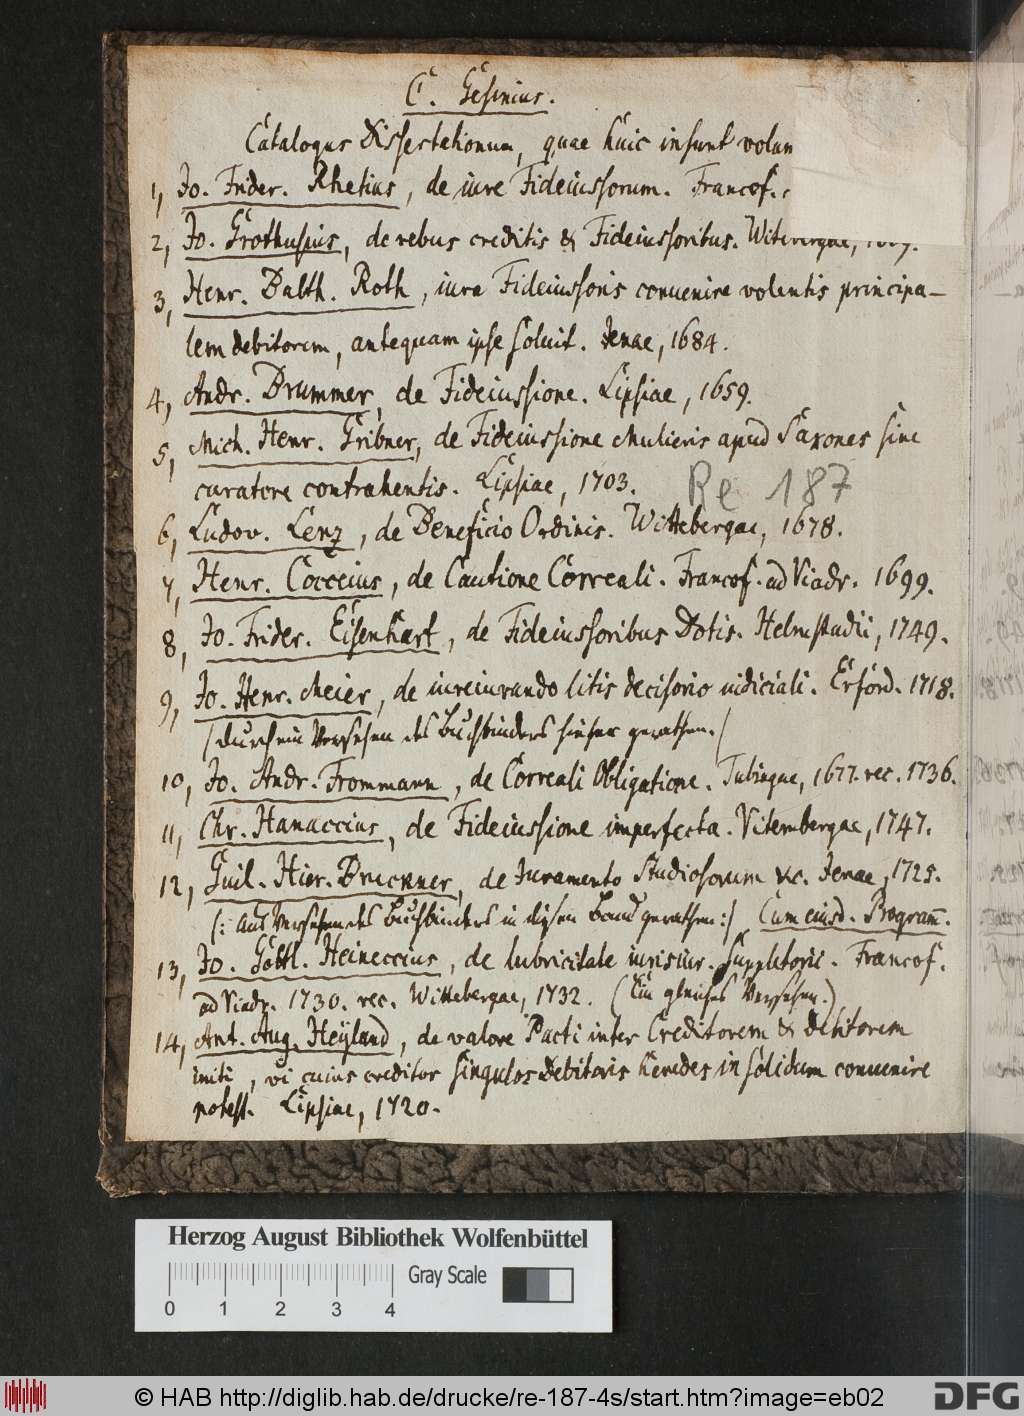 C. Gesenius.
Catalogus Dissertationum, quae huic insunt volum
1, Jo. Frider. Rhetius, de iure Fideiussorum. Francof.
2, Jo. Grothusius, de rebus creditis & Fideiussoribus. Witebergae,
3, Henr. Balth. Roth, iura Fideiussoris convenire volentis principa-
lem debitorem, antequam ipse soluit. Jenae, 1684.
4, Andr. Brummer, de Fideiussione. Lipsiae, 1659.
5, Mich. Henr. Gribner, de Fideiussione Mulieris apud Saxones sine
curatore contrahentis. Lipsiae, 1703.
Re 187
6, Ludov. Lenz, de Beneficio Ordinis. Wittebergae, 1678.
7, Henr. Cocceius, de Cautione Correali. Francof. ad Viadr. 1699.
8, Jo. Frider. Eisenhart, de Fideiussoribus Dotis. Helmstadii, 1749.
9, Jo. Henr. Meier, de iureiurando litis decisorio iudiciali. Erford. 1718.
(durch ein Versehen des Buchbinders hieher gerathen.)
10, Jo. Andr. Frommann, de Correali Obligatione. Tubingae, 1677. rec. 1736.
11, Chr. Hanaccius, de Fideiussione imperfecta. Vitembergae, 1747.
12, Guil. Hier. Bruckner, de Juramento Studiosorum &c. Jenae, 1725.
(: Aus Versehen des Buchbinders in diesen Band gerathen:) Cum eiusd. Programm.
13, Jo. Gottl. Heineccius, de lubricitate iurisiur. Suppletorii. Francof.
ad Viadr. 1730. rec. Wittebergae, 1732. (Ein gleiches Versehen.)
14, Ant. Aug. Heyland, de valore Pacti inter Creditorem & debitorem
initi, vi cuius creditor singulos Debitoris heredes in solidum convenire
potest. Lipsiae, 1720.
Herzog August Bibliothek Wolfenbüttel
Gray Scale
0 1 2 3 4
© HAB http://diglib.hab.de/drucke/re-187-4s/start.htm?image=eb02
DFG